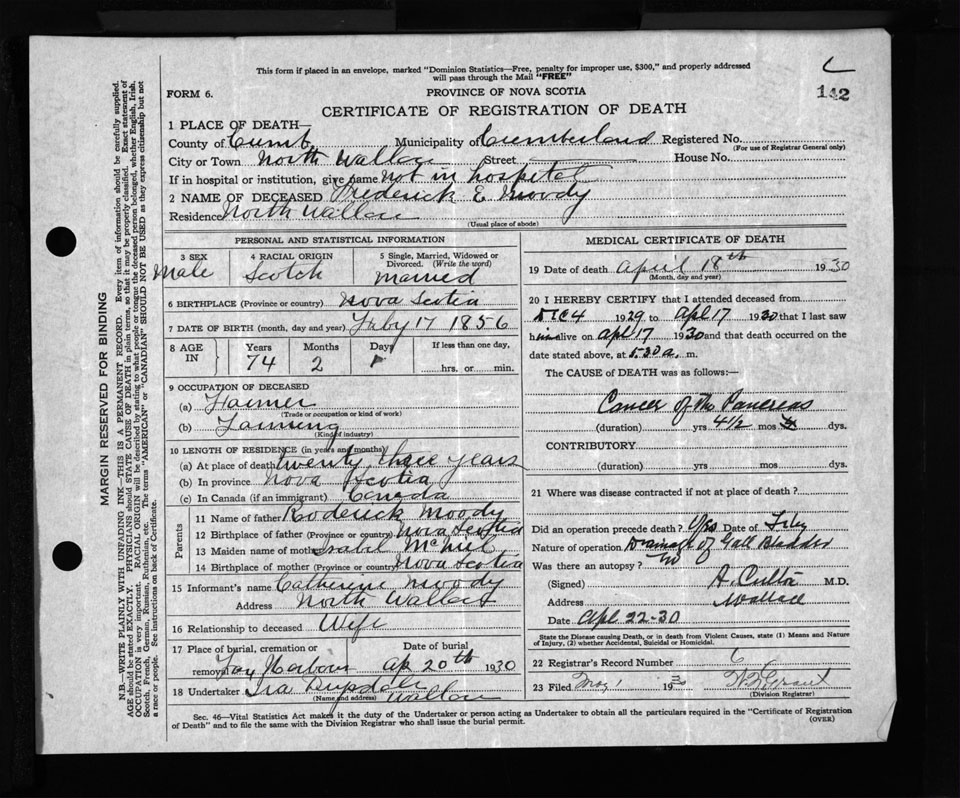 This form if placed in an envelope, marked "Dominion Statistics—Free, penalty for improper use, $300," and properly addressed
will pass through the Mail "FREE"
FORM 6.
PROVINCE OF NOVA SCOTIA
142
CERTIFICATE OF REGISTRATION OF DEATH
1 PLACE OF DEATH—
County of Cumb Municipality of Cumberland Registered No.
(For use of Registrar General only)
City or Town North Wallace Street House No.
If in hospital or institution, give name not in hospital
2 NAME OF DECEASED Frederick E Moody
Residence North Wallace
(Usual place of abode)
PERSONAL AND STATISTICAL INFORMATION
3 SEX Male
4 RACIAL ORIGIN Scotch
5 Single, Married, Widowed or Divorced. (Write the word) Married
6 BIRTHPLACE (Province or country) Nova Scotia
7 DATE OF BIRTH (month, day and year) Feby 17 1856
8 AGE IN Years 74 Months 2 Days If less than one day, hrs. or min.
9 OCCUPATION OF DECEASED
(a) Farmer
(Trade or occupation or kind of work)
(b) Farming
(Kind of industry)
10 LENGTH OF RESIDENCE (in years and months)
(a) At place of death twenty three years
(b) In province Nova Scotia
(c) In Canada (if an immigrant) Canada
Parents
11 Name of father Roderick Moody
12 Birthplace of father (Province or country) Nova Scotia
13 Maiden name of mother Isabel McNiel
14 Birthplace of mother (Province or country) Nova Scotia
15 Informant's name Catherine Moody
Address North Wallace
16 Relationship to deceased Wife
17 Place of burial, cremation or removal Fox Harbour Date of burial Ap 20th 1930
18 Undertaker Ira Wallace
(Name and address)
MEDICAL CERTIFICATE OF DEATH
19 Date of death April 18th 1930
(Month, day and year)
20 I HEREBY CERTIFY that I attended deceased from
Dec 4 1929 to Apl 17 1930 that I last saw
him alive on Apl 17 1930 and that death occurred on
date stated above, at 5.30 a. m.
The CAUSE of DEATH was as follows:—
Cancer of the Pancreas
(duration) yrs 4 1/2 mos dys.
CONTRIBUTORY
(duration) yrs mos dys.
21 Where was disease contracted if not at place of death?
Did an operation precede death? Yes Date of Feby
Nature of operation Drainage of Gall Bladder
Was there an autopsy? No
(Signed) M.D.
Address Wallace
Date Apl 22-30
State the Disease causing Death, or in death from Violent Causes, state (1) Means and Nature
of Injury, (2) whether Accidental, Suicidal or Homicidal.
22 Registrar's Record Number 6
23 Filed May 1 1930 Grant
(Division Registrar)
Sec. 46—Vital Statistics Act makes it the duty of the Undertaker or person acting as Undertaker to obtain all the particulars required in the "Certificate of Registration
of Death" and to file the same with the Division Registrar who shall issue the burial permit.
(OVER)
MARGIN RESERVED FOR BINDING
N.B.—WRITE PLAINLY WITH UNFADING INK—THIS IS A PERMANENT RECORD. Every item of information should be carefully supplied.
AGE should be stated EXACTLY. PHYSICIANS should STATE CAUSE OF DEATH in plain terms, so that it may be properly classified. Exact statement of
OCCUPATION is very important. RACIAL ORIGIN will be described by stating to what people or tongue the deceased person belonged, whether English, Irish,
Scotch, French, German, Russian, Ruthenian, etc. The terms "AMERICAN" or "CANADIAN" SHOULD NOT BE USED as they express citizenship but not
a race or people. See instructions on back of Certificate.